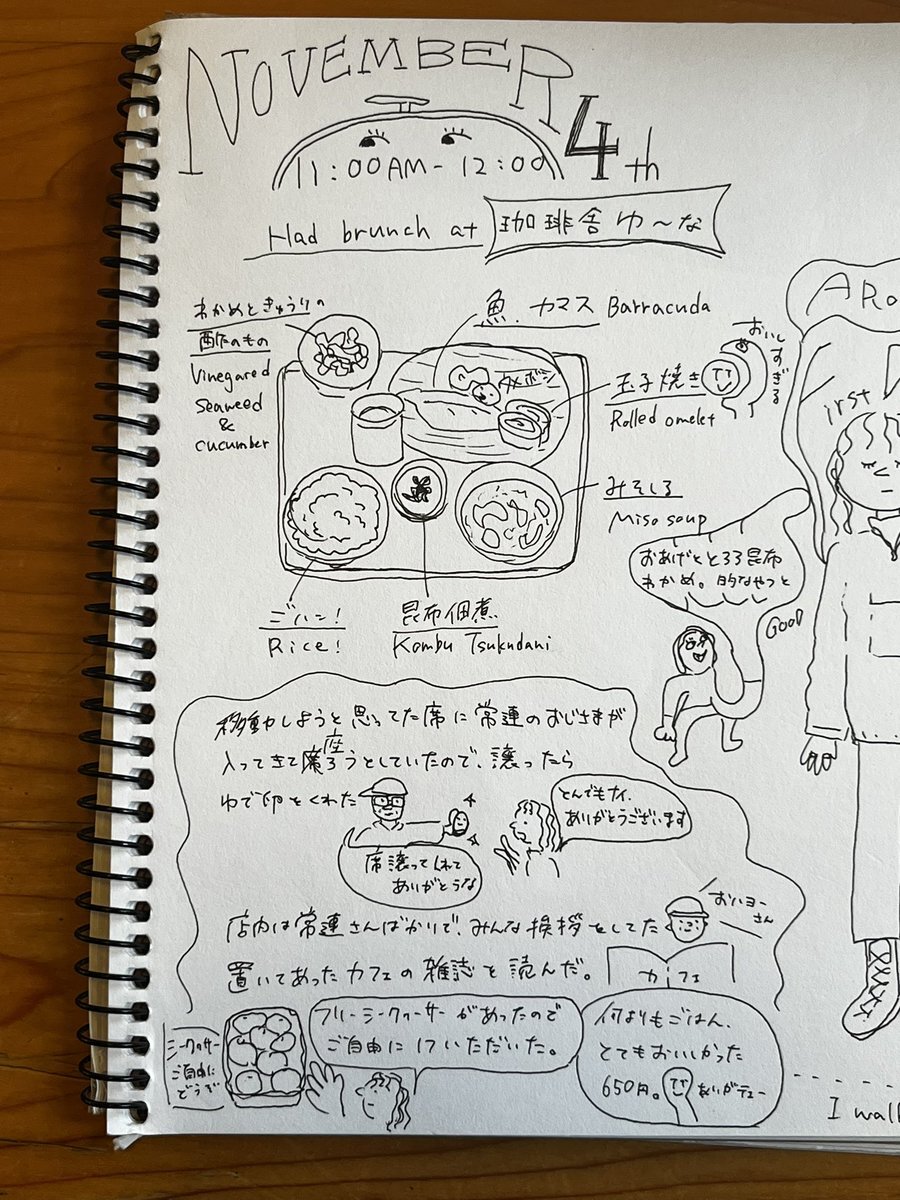 NOVEMBER 4th
11:00AM - 12:00
Had brunch at 珈琲舎ゆ〜な
わかめときゅうりの
酢のもの
Vinegared
seaweed
&
cucumber
魚 カマス Barracuda
ウメボシ
玉子焼き
Rolled omelet
おいしすぎる
みそしる
Miso soup
おあげととろろ昆布
わかめ。的なやつと
GOOD
ゴハン!
Rice!
昆布佃煮
Kombu Tsukudani
移動しようと思ってた席に常連のおじさまが
入ってきて座ろうとしていたので、譲ったら
ゆで卵をくれた
席譲ってくれて
ありがとうな
とんでもナイ、
ありがとうございます
店内は常連さんばかりで、みんな挨拶をしてた
おはヨー
さん
置いてあったカフェの雑誌を読んだ。
カフェ
シークヮサー
ご自由に
どうぞ
フリーシークヮーサーがあったので
ご自由に1ついただいた。
何よりもごはん、
とてもおいしかった
650円。ありがテュー
ARO
irst
I wal